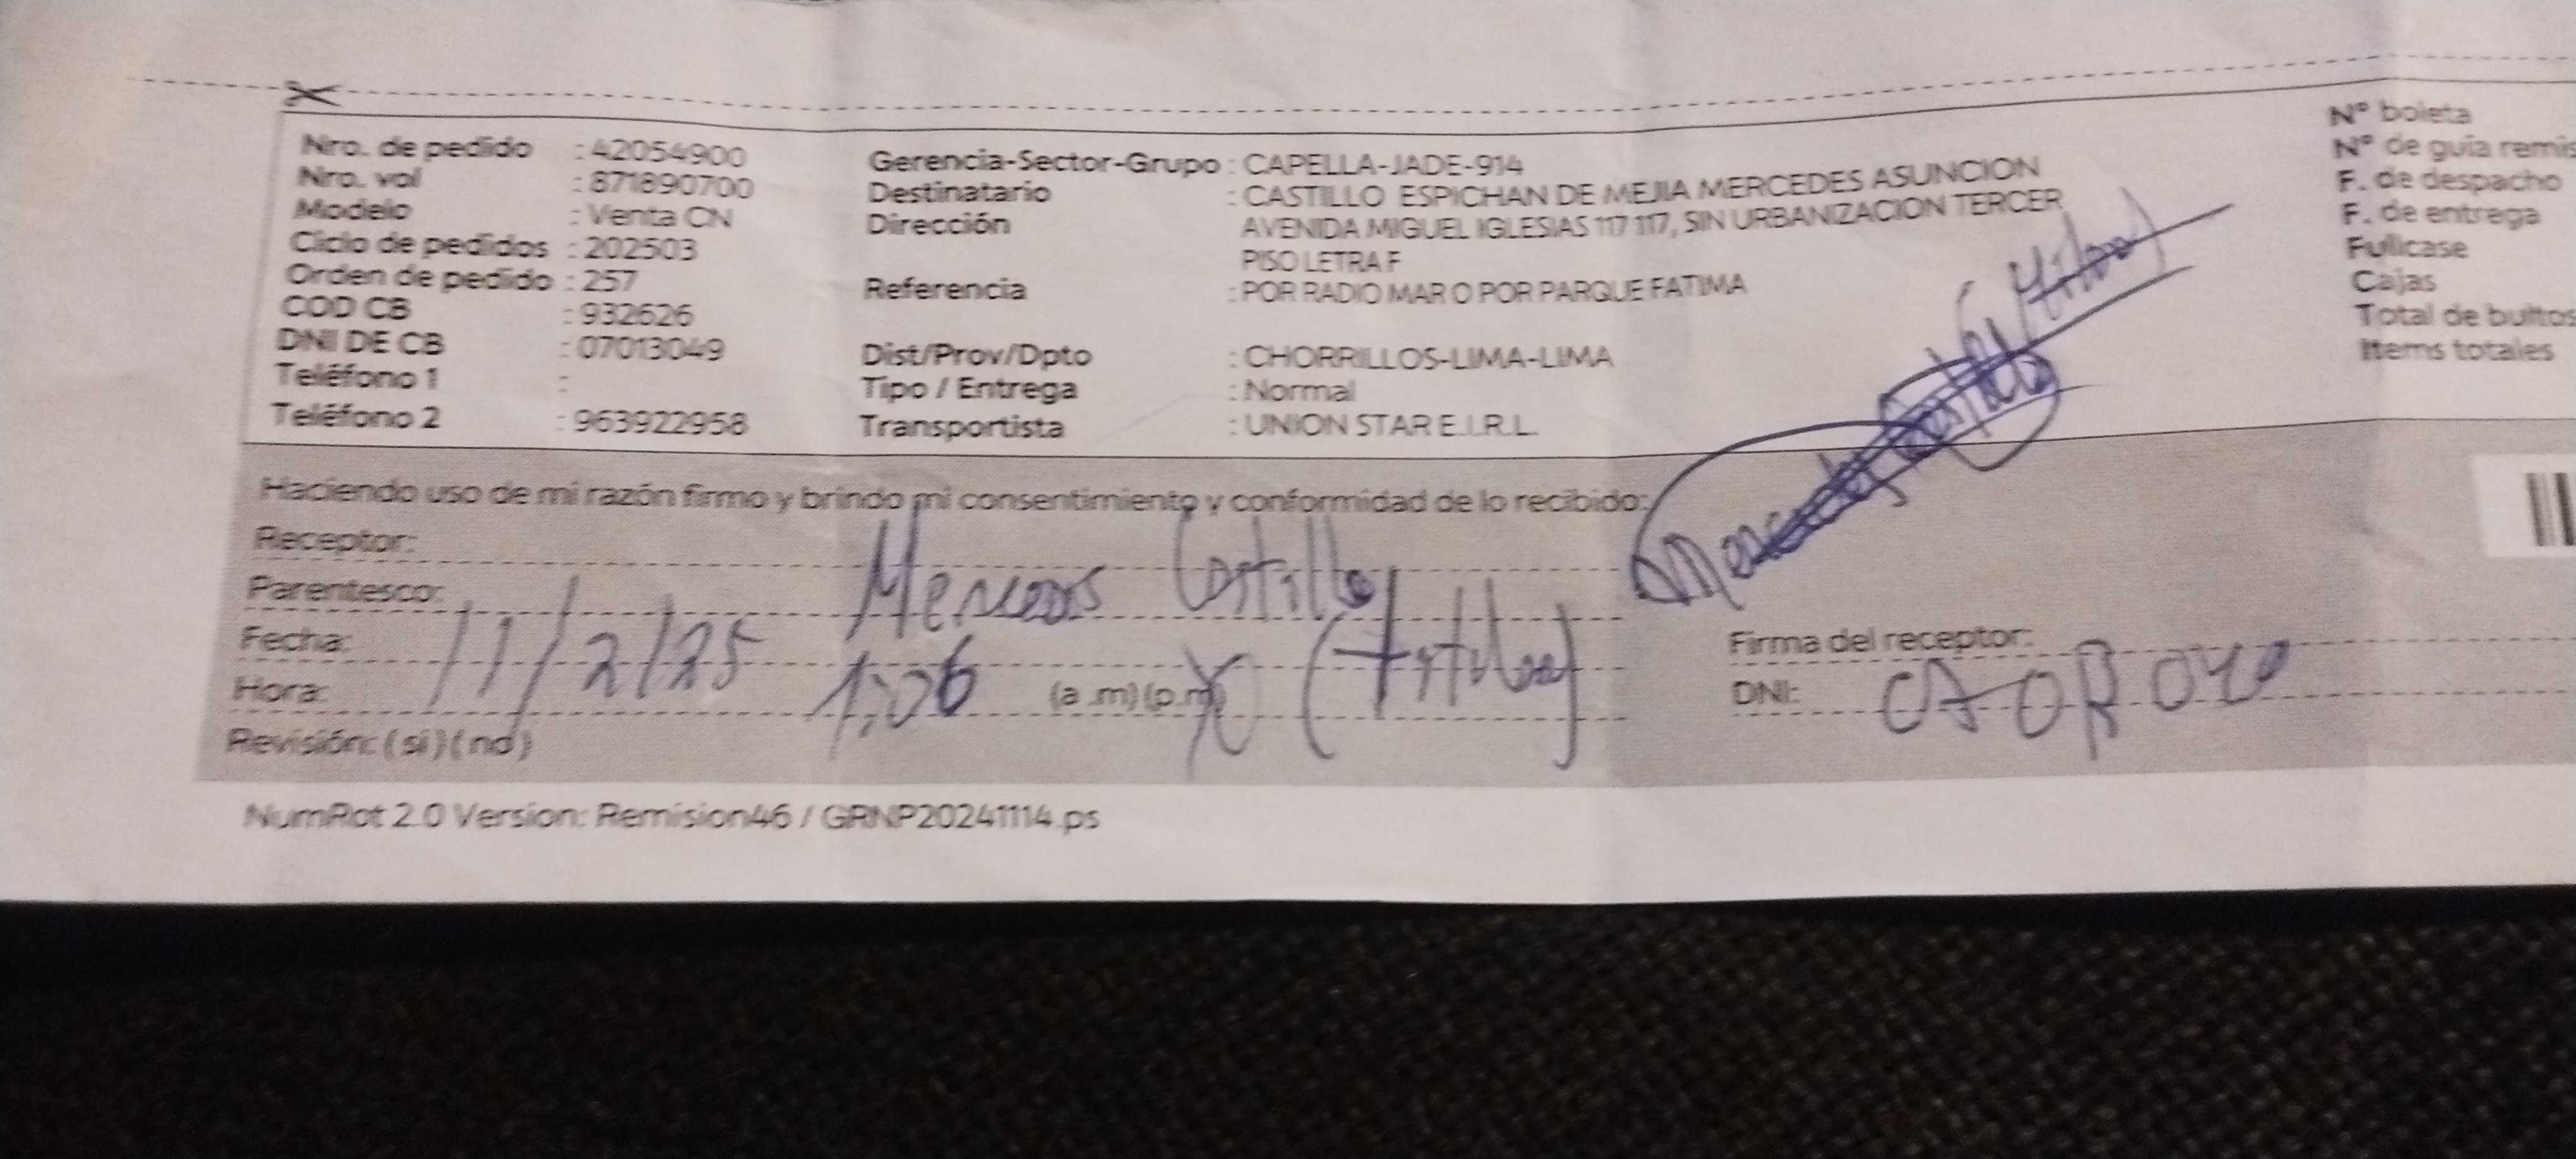 Nro. de pedido : 42054900
Nro. vol : 871890700
Modelo : Venta CN
Ciclo de pedidos : 202503
Orden de pedido : 257
COD CB : 932626
DNI DE CB : 07013049
Teléfono 1 :
Teléfono 2 : 963922958
Gerencia-Sector-Grupo : CAPELLA-JADE-914
Destinatario : CASTILLO ESPICHAN DE MEJIA MERCEDES ASUNCION
Dirección AVENIDA MIGUEL IGLESIAS 117 117, SIN URBANIZACION TERCER
PISO LETRA F
Referencia : POR RADIO MAR O POR PARQUE FATIMA
Dist/Prov/Dpto : CHORRILLOS-LIMA-LIMA
Tipo / Entrega : Normal
Transportista : UNION STAR E.I.R.L.
Nº boleta
Nº de guía remis
F. de despacho
F. de entrega
Fullcase
Cajas
Total de bultos
Items totales
Haciendo uso de mi razón firmo y brindo mi consentimiento y conformidad de lo recibido:
Receptor:
Parentesco: Mercedes Castillo
Fecha: 11/2/25
Hora: 1:06 (a.m)(p.m)
Revisión: (si)(no)
Firma del receptor:
DNI:
NumRot 2.0 Version: Remision46 / GRNP20241114.ps